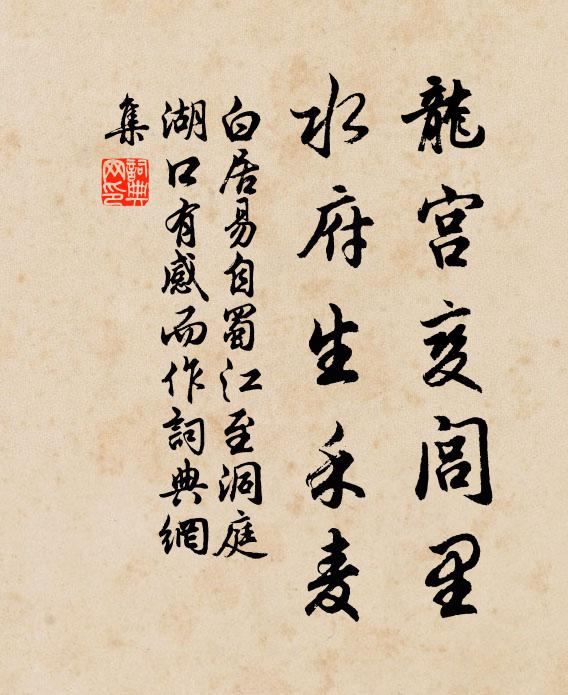 龍宫变闾里
水府生禾麦
白居易自蜀江至洞庭
湖口有感而作詞典網
集
詞典
网印